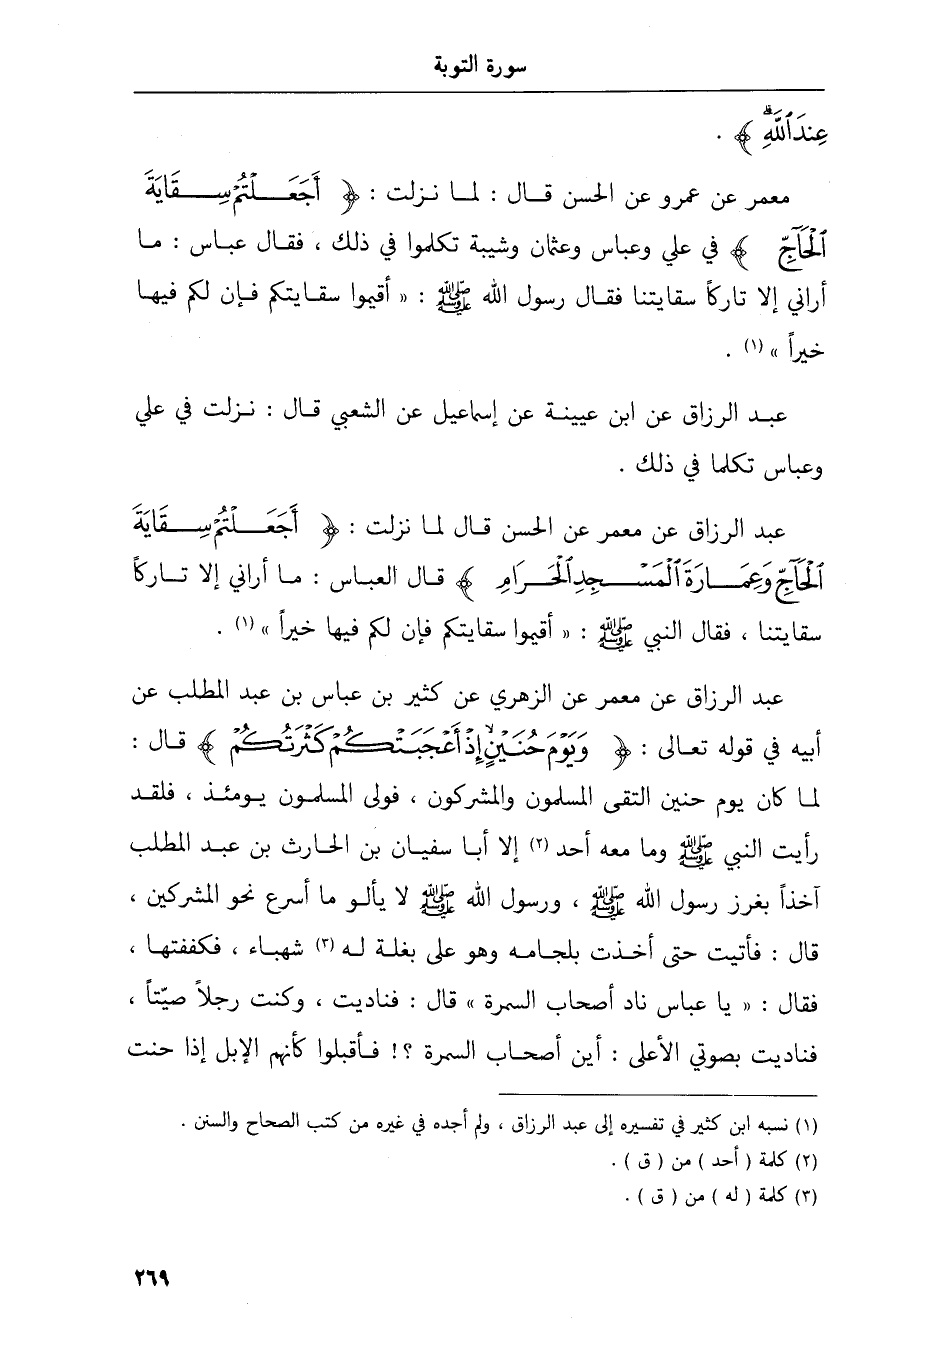 سورة التوبة
عِندَ ٱللَّهِۗ ﴾ .
معمر عن عمرو عن الحسن قال : لما نزلت : ﴿ أَجَعَلْتُمْ سِقَايَةَ
ٱلْحَآجِّ ﴾ في علي وعباس وعثمان وشيبة تكلموا في ذلك ، فقال عباس : ما
أراني إلا تاركاً سقايتنا فقال رسول الله ﷺ : « أقيموا سقايتكم فإن لكم فيها
خيراً » (١) .
عبد الرزاق عن ابن عيينة عن إسماعيل عن الشعبي قال : نزلت في علي
وعباس تكلما في ذلك .
عبد الرزاق عن معمر عن الحسن قال لما نزلت : ﴿ أَجَعَلْتُمْ سِقَايَةَ
ٱلْحَآجِّ وَعِمَارَةَ ٱلْمَسْجِدِ ٱلْحَرَامِ ﴾ قال العباس : ما أراني إلا تاركاً
سقايتنا ، فقال النبي ﷺ : « أقيموا سقايتكم فإن لكم فيها خيراً » (١) .
عبد الرزاق عن معمر عن الزهري عن كثير بن عباس بن عبد المطلب عن
أبيه في قوله تعالى : ﴿ وَيَوْمَ حُنَيْنٍۙ إِذْ أَعْجَبَتْكُمْ كَثْرَتُكُمْ ﴾ قال :
لما كان يوم حنين التقى المسلمون والمشركون ، فولى المسلمون يومئذ ، فلقد
رأيت النبي ﷺ وما معه أحد (٢) إلا أبا سفيان بن الحارث بن عبد المطلب
آخذاً بغرز رسول الله ﷺ ، ورسول الله ﷺ لا يألو ما أسرع نحو المشركين ،
قال : فأتيت حتى أخذت بلجامه وهو على بغلة له (٣) شهباء ، فكففتها ،
فقال : « يا عباس ناد أصحاب السمرة » قال : فناديت ، وكنت رجلاً صيّتاً ،
فناديت بصوتي الأعلى : أين أصحاب السمرة ؟! فأقبلوا كأنهم الإبل إذا حنت
(١) نسبه ابن كثير في تفسيره إلى عبد الرزاق ، ولم أجده في غيره من كتب الصحاح والسنن .
(٢) كلمة ( أحد ) من ( ق ) .
(٣) كلمة ( له ) من ( ق ) .
٢٦٩